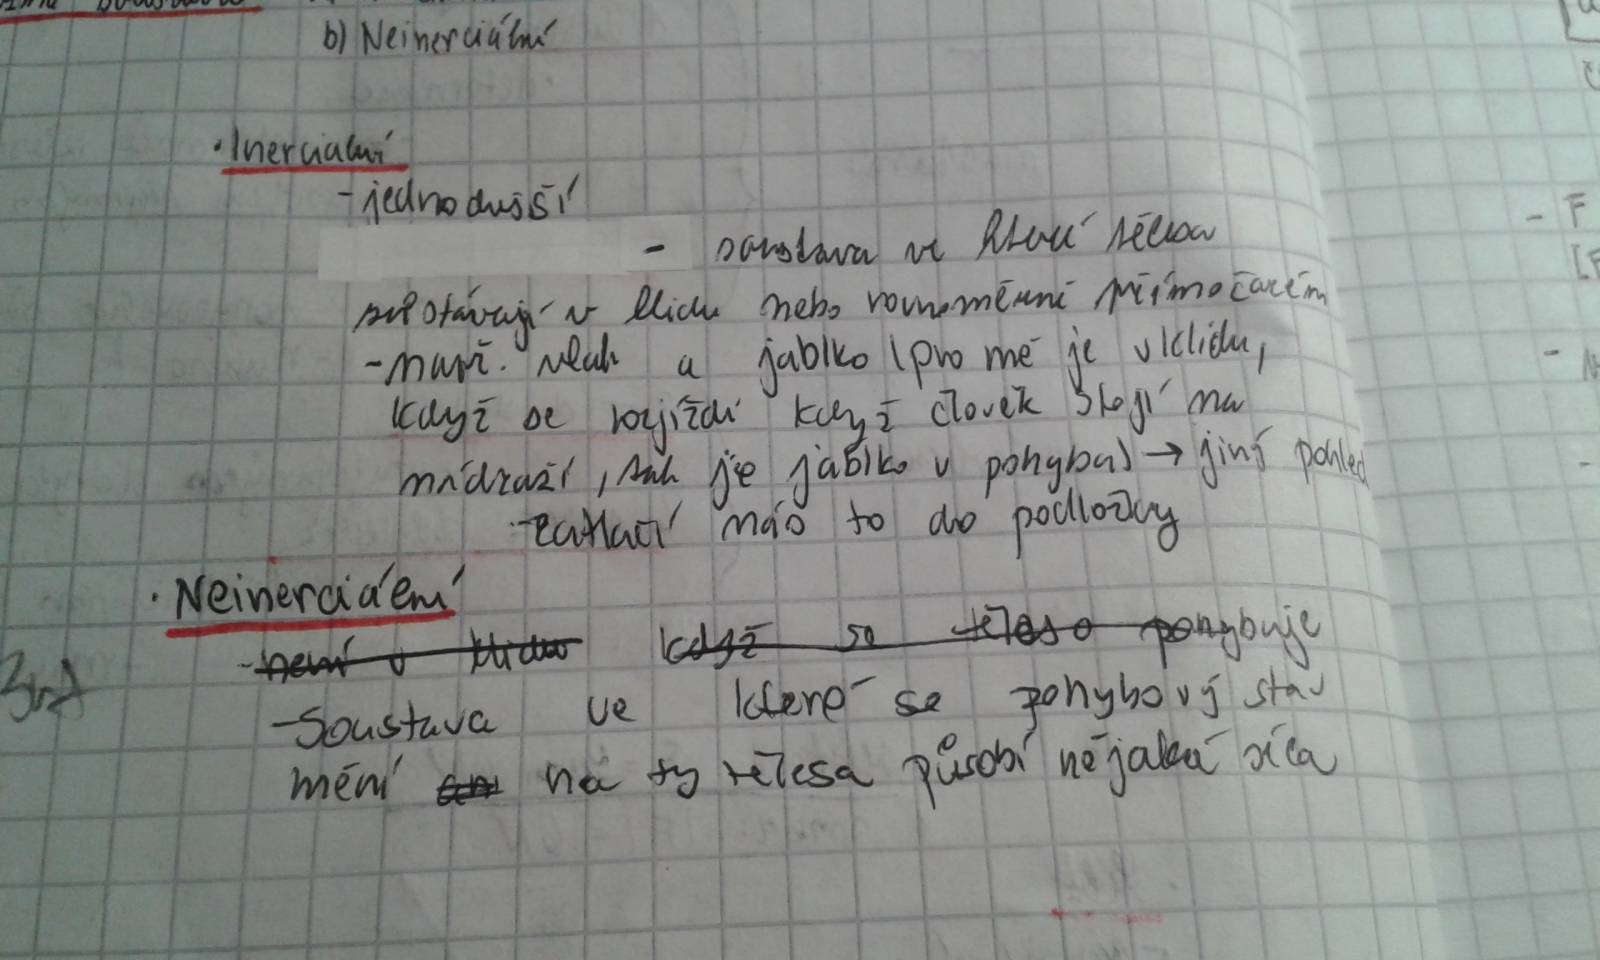 b) Neinerciální
· Inerciální
- jednodušší
- soustava ve které tělesa
setrvávají v klidu nebo rovnoměrně přímočarém
- např. vlak a jablko (pro mě je v klidu,
když se rozjíždí když člověk stojí na
nádraží, tak je jablko v pohybu) → jiný pohled
- zatlačí nás to do podložky
· Neinerciální
- není v klidu když se těleso pohybuje
- Soustava ve které se pohybový stav
mění na ty tělesa působí nějaká síla
- F